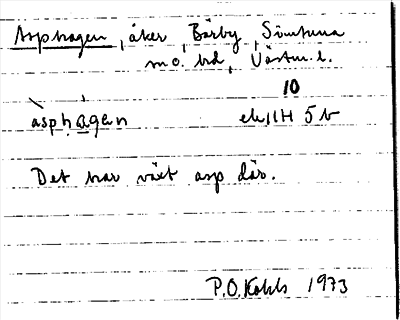 Asphagen, åker, Bärby, Simtuna
sn o. hd, Västm. l.
10
àsphágen ek 11H 5b
Det har växt asp där.
P.O. Kohls 1973